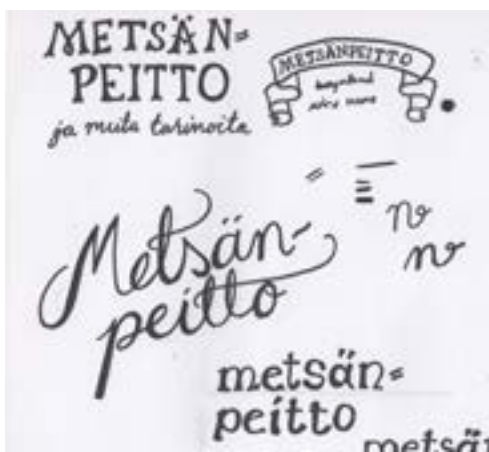 METSÄN=
PEITTO
ja muita tarinoita
METSÄNPEITTO
Metsän-
peitto
n
n
metsän=
peitto
metsän